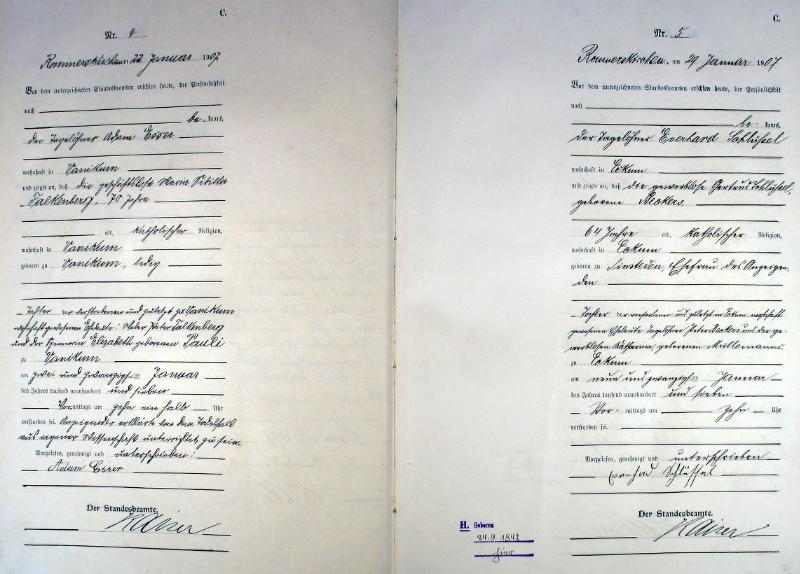 C.
Nr. 4
Rommerskirchen am 22. Januar 1907
Vor dem unterzeichneten Standesbeamten erschien heute, der Persönlichkeit
nach
be- kannt,
der Tagelöhner Adam Esser
wohnhaft in Vanikum
und zeigte an, daß die geschäftslose Maria Sibilla
Falkenberg, 70 Jahre
alt, katholischer Religion,
wohnhaft in Vanikum
geboren zu Vanikum, ledig
Tochter der verstorbenen und zuletzt zu Vanikum
wohnhaft gewesenen Eheleute: Peter Falkenberg
und der Elisabeth geborenen Pauli
zu Vanikum
am zwei und zwanzigsten Januar
des Jahres tausend neunhundert und sieben
Vormittags um zehn ein halb Uhr
verstorben sei. Anzeigender erklärte von dem Todesfall
aus eigener Wissenschaft unterrichtet zu sein.
Vorgelesen, genehmigt und unterschrieben:
Adam Esser
Der Standesbeamte.
Kaiser
C.
Nr. 5
Rommerskirchen, am 29 Januar 1907
Vor dem unterzeichneten Standesbeamten erschien heute, der Persönlichkeit
nach
be- kannt,
der Tagelöhner Everhard Schlüssel
wohnhaft in Eckum
und zeigte an, daß die gewerblose Gertrud Schlüssel,
geborene Neckers
64 Jahre alt, katholischer Religion,
wohnhaft in Eckum
geboren zu Sinsteden, Ehefrau des Anzeigen-
den
Tochter der verstorbenen und zuletzt in Eckum wohnhaft
gewesenen Eheleute Tagelöhner Peter Neckers und der ge-
werblosen Katharina, geborenen Müllemanns
zu Eckum
am neun und zwanzigsten Januar
des Jahres tausend neunhundert und sieben
Vor mittags um zehn Uhr
verstorben sei.
Vorgelesen, genehmigt und unterschrieben
Schlüssel
Der Standesbeamte.
Kaiser
H. Geboren
24.9.1842